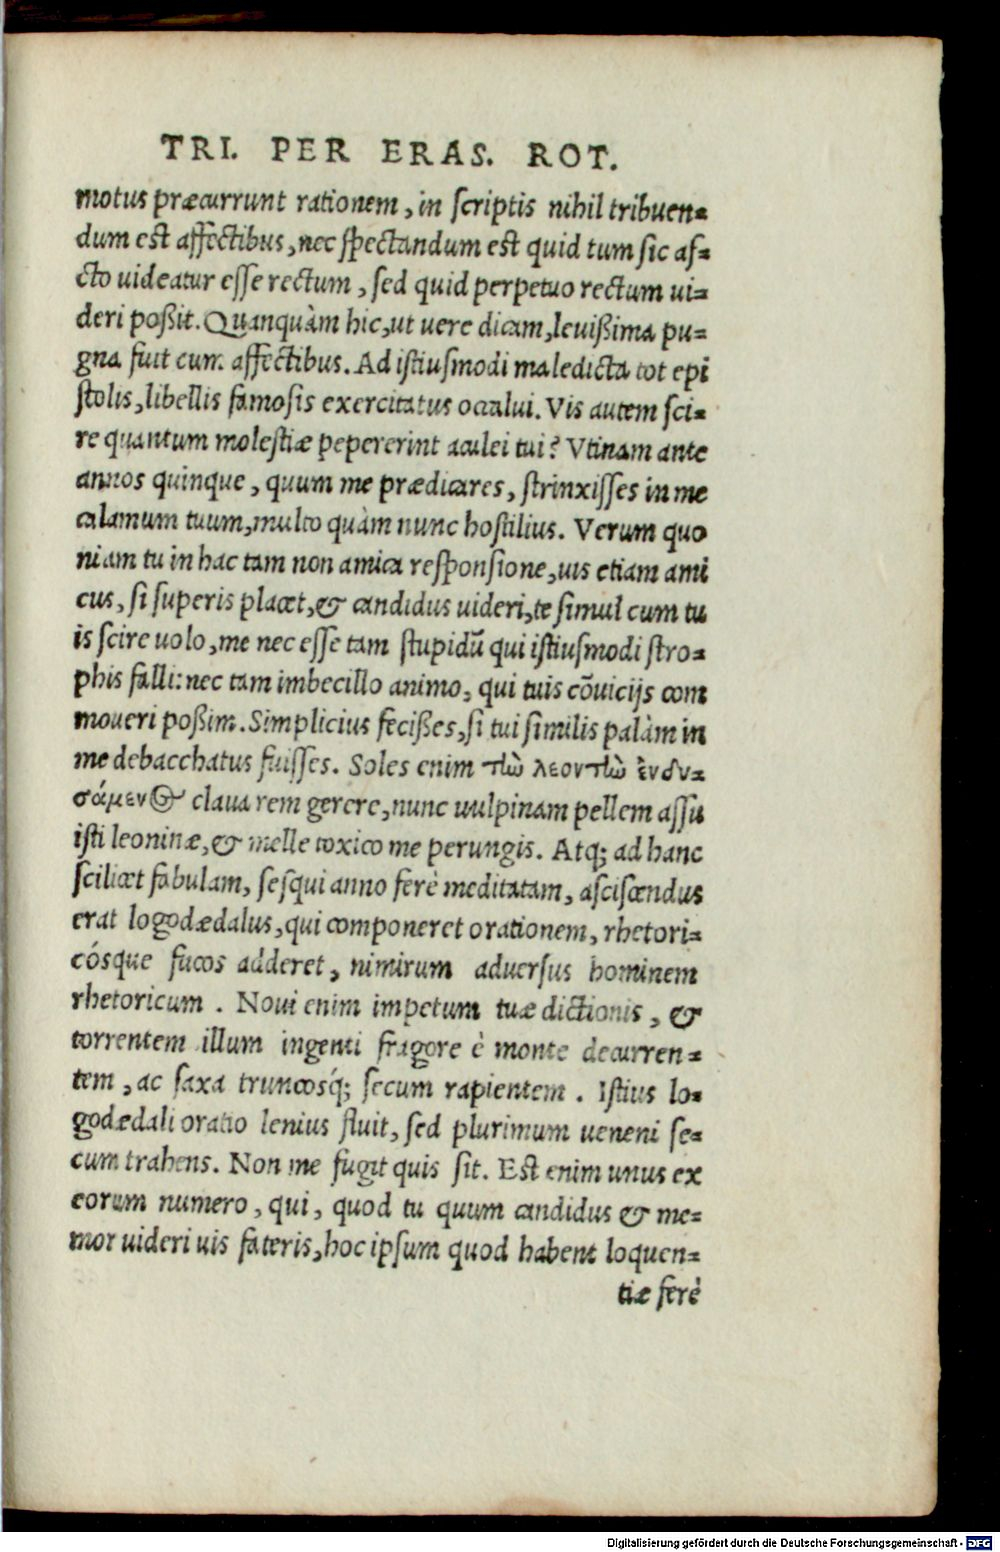 TRI. PER ERAS. ROT.
motus præcurrunt rationem, in scriptis nihil tribuen=
dum est affectibus, nec spectandum est quid tum sic af=
cto uideatur esse rectum, sed quid perpetuo rectum ui=
deri poßit. Quanquàm hic, ut uere dicam, leuißima pu=
gna fuit cum affectibus. Ad istiusmodi maledicta tot epi
stolis, libellis famosis exercitatus occalui. Vis autem sci=
re quantum molestiæ pepererint aculei tui? Vtinam ante
annos quinque, quum me prædicares, strinxisses in me
calamum tuum, multo quàm nunc hostilius. Verum quo
niam tu in hac tam non amica responsione, uis etiam ami
cus, si superis placet, & candidus uideri, te simul cum tu
is scire uolo, me nec esse tam stupidū qui istiusmodi stro=
phis falli: nec tam imbecillo animo, qui tuis cōuicijs com
moueri poßim. Simplicius fecißes, si tui similis palàm in
me debacchatus fuisses. Soles enim τὼ λεοντὼ ἐνδυ=
σάμενος claua rem gerere, nunc uulpinam pellem assu
isti leoninæ, & melle toxico me perungis. Atq; ad hanc
scilicet fabulam, sesqui anno ferè meditatam, asciscendus
erat logodædalus, qui componeret orationem, rhetori=
cósque fucos adderet, nimirum aduersus hominem
rhetoricum. Noui enim impetum tuæ dictionis, &
torrentem illum ingenti fragore è monte decurren=
tem, ac saxa truncosq́; secum rapientem. Istius lo=
godædali oratio lenius fluit, sed plurimum ueneni se=
cum trahens. Non me fugit quis sit. Est enim unus ex
eorum numero, qui, quod tu quum candidus & me=
mor uideri uis fateris, hoc ipsum quod habent loquen=
tiæ ferè
Digitalisierung gefördert durch die Deutsche Forschungsgemeinschaft - DFG